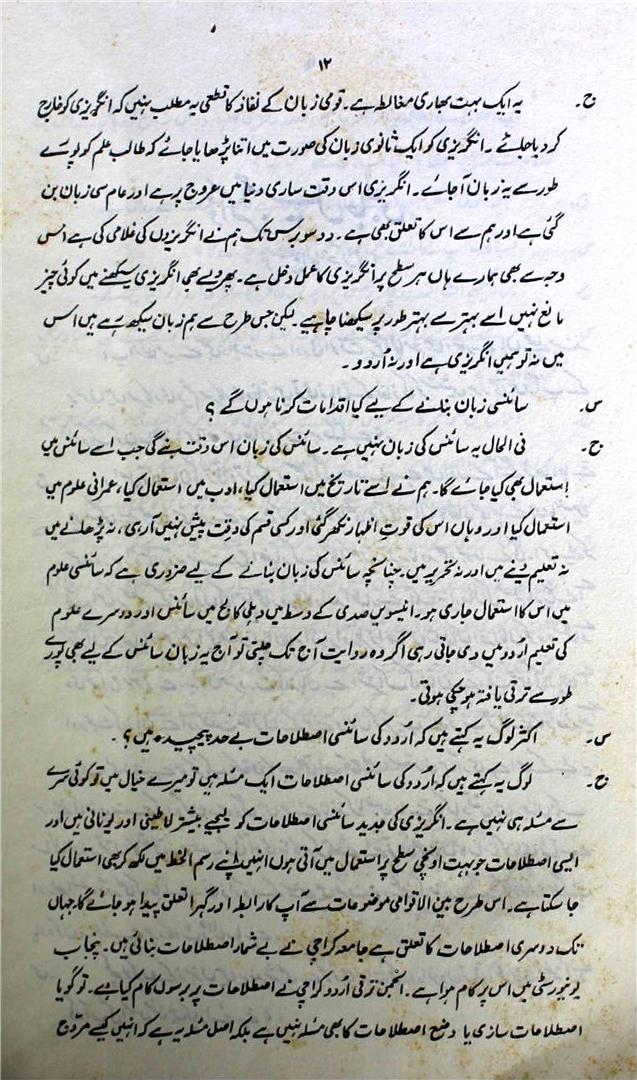 ۱۲
ج۔ یہ ایک بہت بھاری مغالطہ ہے۔ قومی زبان کے نفاذ کا قطعی یہ مطلب نہیں کہ انگریزی کو خارج
کر دیا جائے۔ انگریزی کو ایک ثانوی زبان کی صورت میں اتنا پڑھایا جائے کہ طالب علم کو پورے
طور سے یہ زبان آ جائے۔ انگریزی اس وقت ساری دنیا میں عروج پر ہے اور عام سی زبان بن
گئی ہے اور ہم سے اس کا تعلق بھی ہے۔ دو سو برس تک ہم نے انگریزوں کی غلامی کی ہے اس
وجہ سے بھی ہمارے ہاں ہر سطح پر انگریزی کا عمل دخل ہے۔ پھر ویسے بھی انگریزی سیکھنے میں کوئی چیز
مانع نہیں اسے بہتر سے بہتر طور پر سیکھنا چاہیے۔ لیکن جس طرح سے ہم زبان سیکھ رہے ہیں اس
میں نہ تو ہمیں انگریزی ہے اور نہ اُردو۔
س۔ سائنسی زبان بنانے کے لیے کیا اقدامات کرنا ہوں گے؟
ج۔ فی الحال یہ سائنس کی زبان نہیں ہے۔ سائنس کی زبان اس وقت بنے گی جب اسے سائنس میں
استعمال بھی کیا جائے گا۔ ہم نے اسے تاریخ میں استعمال کیا، ادب میں استعمال کیا، عمرانی علوم میں
استعمال کیا اور وہاں اس کی قوتِ اظہار نکھر گئی اور کسی قسم کی دقت پیش نہیں آ رہی، نہ پڑھانے میں
نہ تعلیم دینے میں اور نہ تحریر میں۔ چنانچہ سائنس کی زبان بنانے کے لیے ضروری ہے کہ سائنسی علوم
میں اس کا استعمال جاری ہو۔ انیسویں صدی کے وسط میں دہلی کالج میں سائنس اور دوسرے علوم
کی تعلیم اُردو میں دی جاتی رہی اگر وہ روایت آج تک چلتی تو آج یہ زبان سائنس کے لیے بھی پورے
طور سے ترقی یافتہ ہو چکی ہوتی۔
س۔ اکثر لوگ یہ کہتے ہیں کہ اُردو کی سائنسی اصطلاحات بے حد پیچیدہ ہیں؟
ج۔ لوگ یہ کہتے ہیں کہ اُردو کی سائنسی اصطلاحات ایک مسئلہ ہیں تو میرے خیال میں تو کوئی سرے
سے مسئلہ ہی نہیں ہے۔ انگریزی کی جدید سائنسی اصطلاحات کو لیجیے بیشتر لاطینی اور یونانی ہیں اور
ایسی اصطلاحات جو بہت اونچی سطح پر استعمال میں آتی ہوں انہیں اپنے رسم الخط میں لکھ کر بھی استعمال کیا
جا سکتا ہے۔ اس طرح بین الاقوامی موضوعات سے آپ کا رابطہ اور گہرا تعلق پیدا ہو جائے گا۔ جہاں
تک دوسری اصطلاحات کا تعلق ہے جامعہ کراچی نے بے شمار اصطلاحات بنائی ہیں۔ پنجاب
یونیورسٹی میں اس پر کام ہوا ہے۔ انجمن ترقی اُردو کراچی نے اصطلاحات پر برسوں کام کیا ہے۔ تو گویا
اصطلاحات سازی یا وضع اصطلاحات کا بھی مسئلہ نہیں ہے بلکہ اصل مسئلہ یہ ہے کہ انہیں کیسے مروج